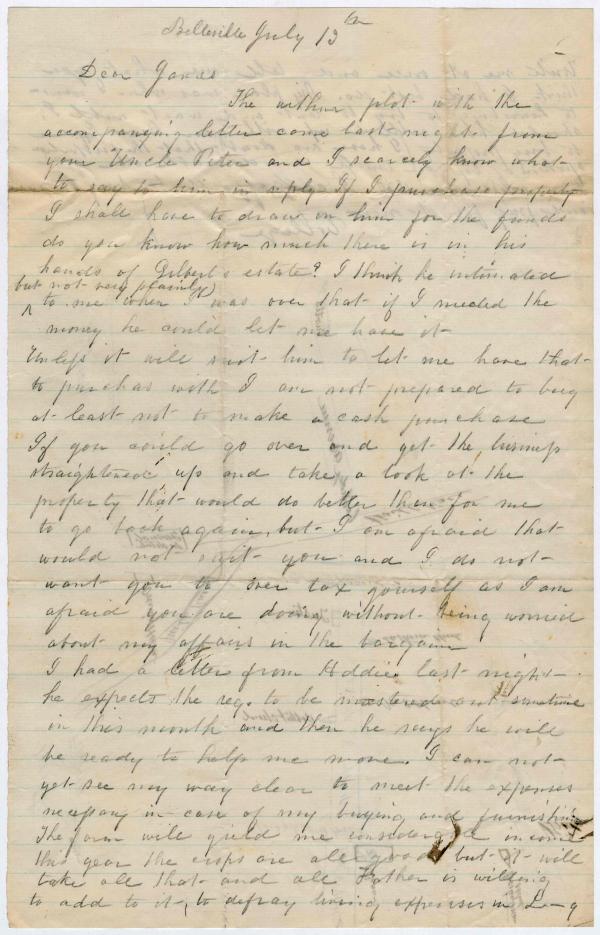 Belleville July 13th
Dear James
The within plot with the
accompanying letter came last night from
your Uncle Peter and I scarcely know what
to say to him in reply If I purchase property
I shall have to draw on him for the funds
do you know how much there is in his
hands of Gilbert's estate? I think he intimated
but not very plainly)
^ to me when I was over that if I needed the
money he could let me have it
Unless it will suit him to let me have that
to purchas with I am not prepared to buy
at least not to make a cash purchase
If you could go over and get the business
straightened up and take a look at the
property that would do better than for me
to go back again, but I am afraid that
would not suit you and I do not
want you to over tax yourself as I am
afraid you are doing without being worried
about my affairs in the bargain
I had a letter from Eddie last night
he expects the reg. to be mustered out sometime
in this month and then he says he will
be ready to help me move. I can not
yet see my way clear to meet the expenses
necessary in case of my buying and furnishing
The farm will yield me considerable income
this year the crops are all good but it will
take all that and all Father is willing
to add to it, to defray living expenses in